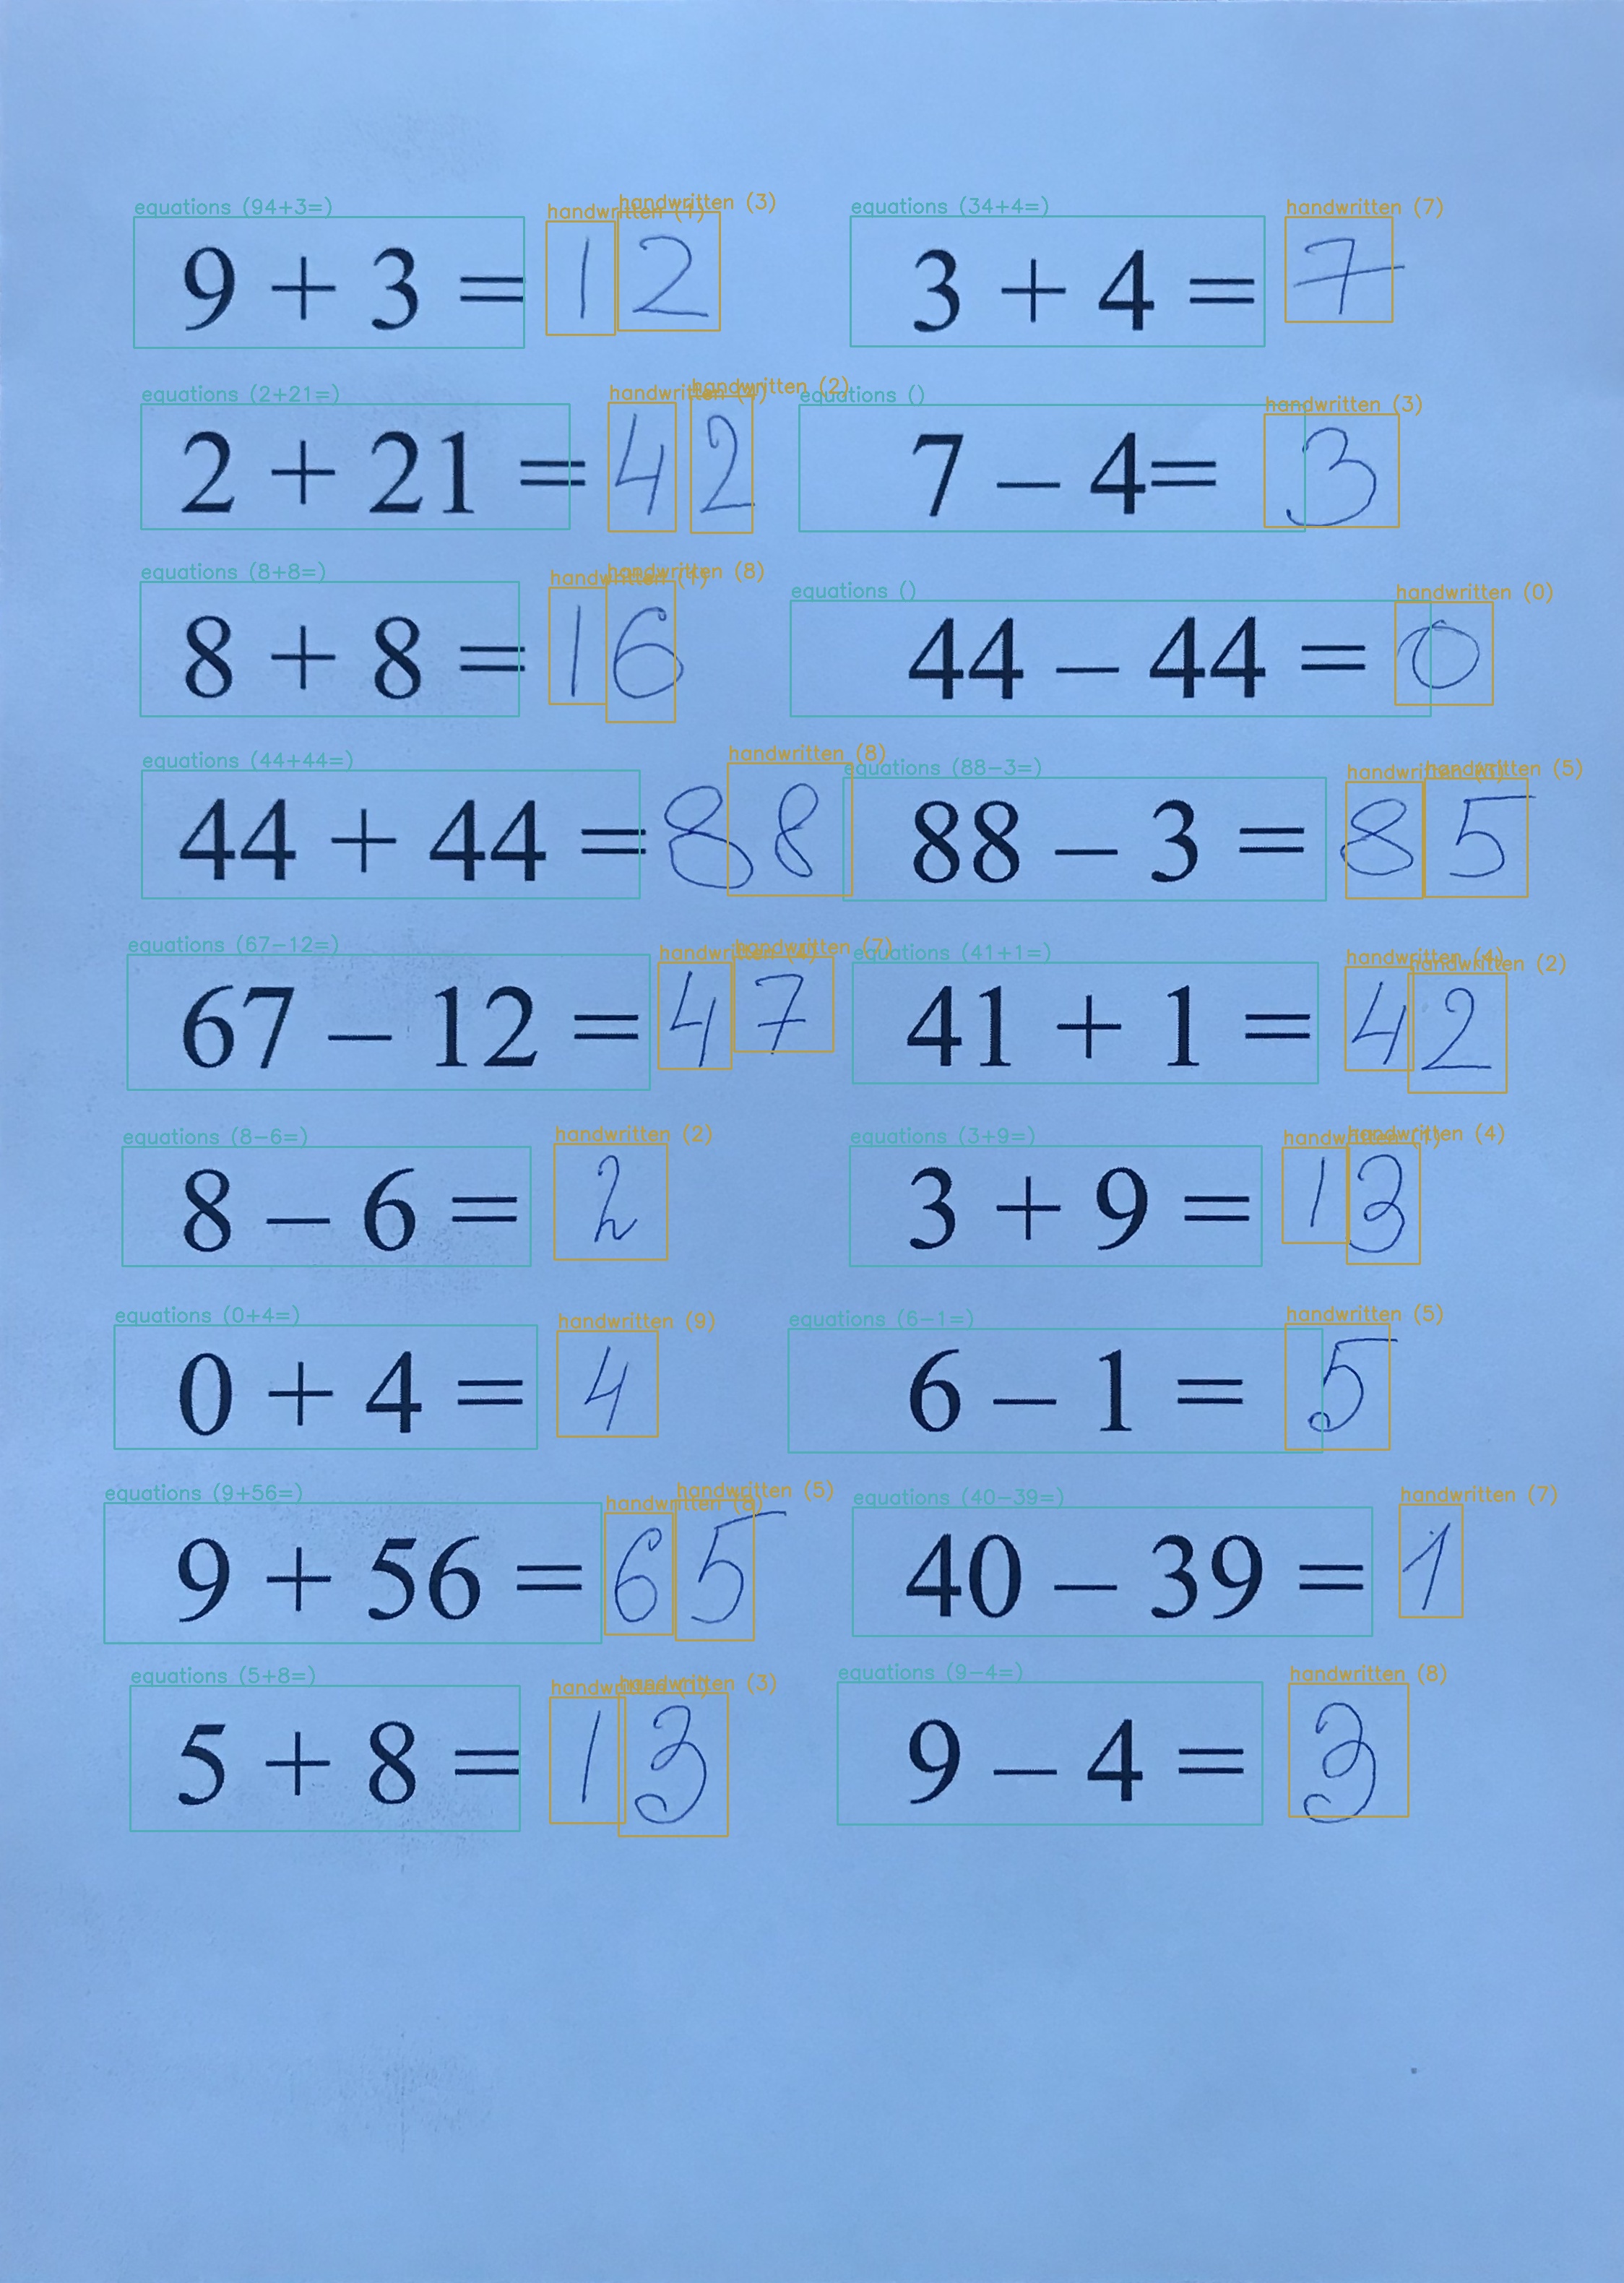 equations (94+3=) handwritten (1) handwritten (3) equations (34+4=) handwritten (7)
9 + 3 = 12 3 + 4 = 7
equations (2+21=) handwritten (4) handwritten (2) equations () handwritten (3)
2 + 21 = 42 7 – 4= 3
equations (8+8=) handwritten (1) handwritten (8) equations () handwritten (0)
8 + 8 = 16 44 – 44 = 0
equations (44+44=) handwritten (8) equations (88-3=) handwritten handwritten (5)
44 + 44 = 88 88 – 3 = 85
equations (67-12=) handwritten (4) handwritten (7) equations (41+1=) handwritten (4) handwritten (2)
67 – 12 = 47 41 + 1 = 42
equations (8-6=) handwritten (2) equations (3+9=) handwritten (1) handwritten (4)
8 – 6 = 2 3 + 9 = 13
equations (0+4=) handwritten (9) equations (6-1=) handwritten (5)
0 + 4 = 4 6 – 1 = 5
equations (9+56=) handwritten handwritten (5) equations (40-39=) handwritten (7)
9 + 56 = 65 40 – 39 = 1
equations (5+8=) handwritten (1) handwritten (3) equations (9-4=) handwritten (8)
5 + 8 = 13 9 – 4 = 3